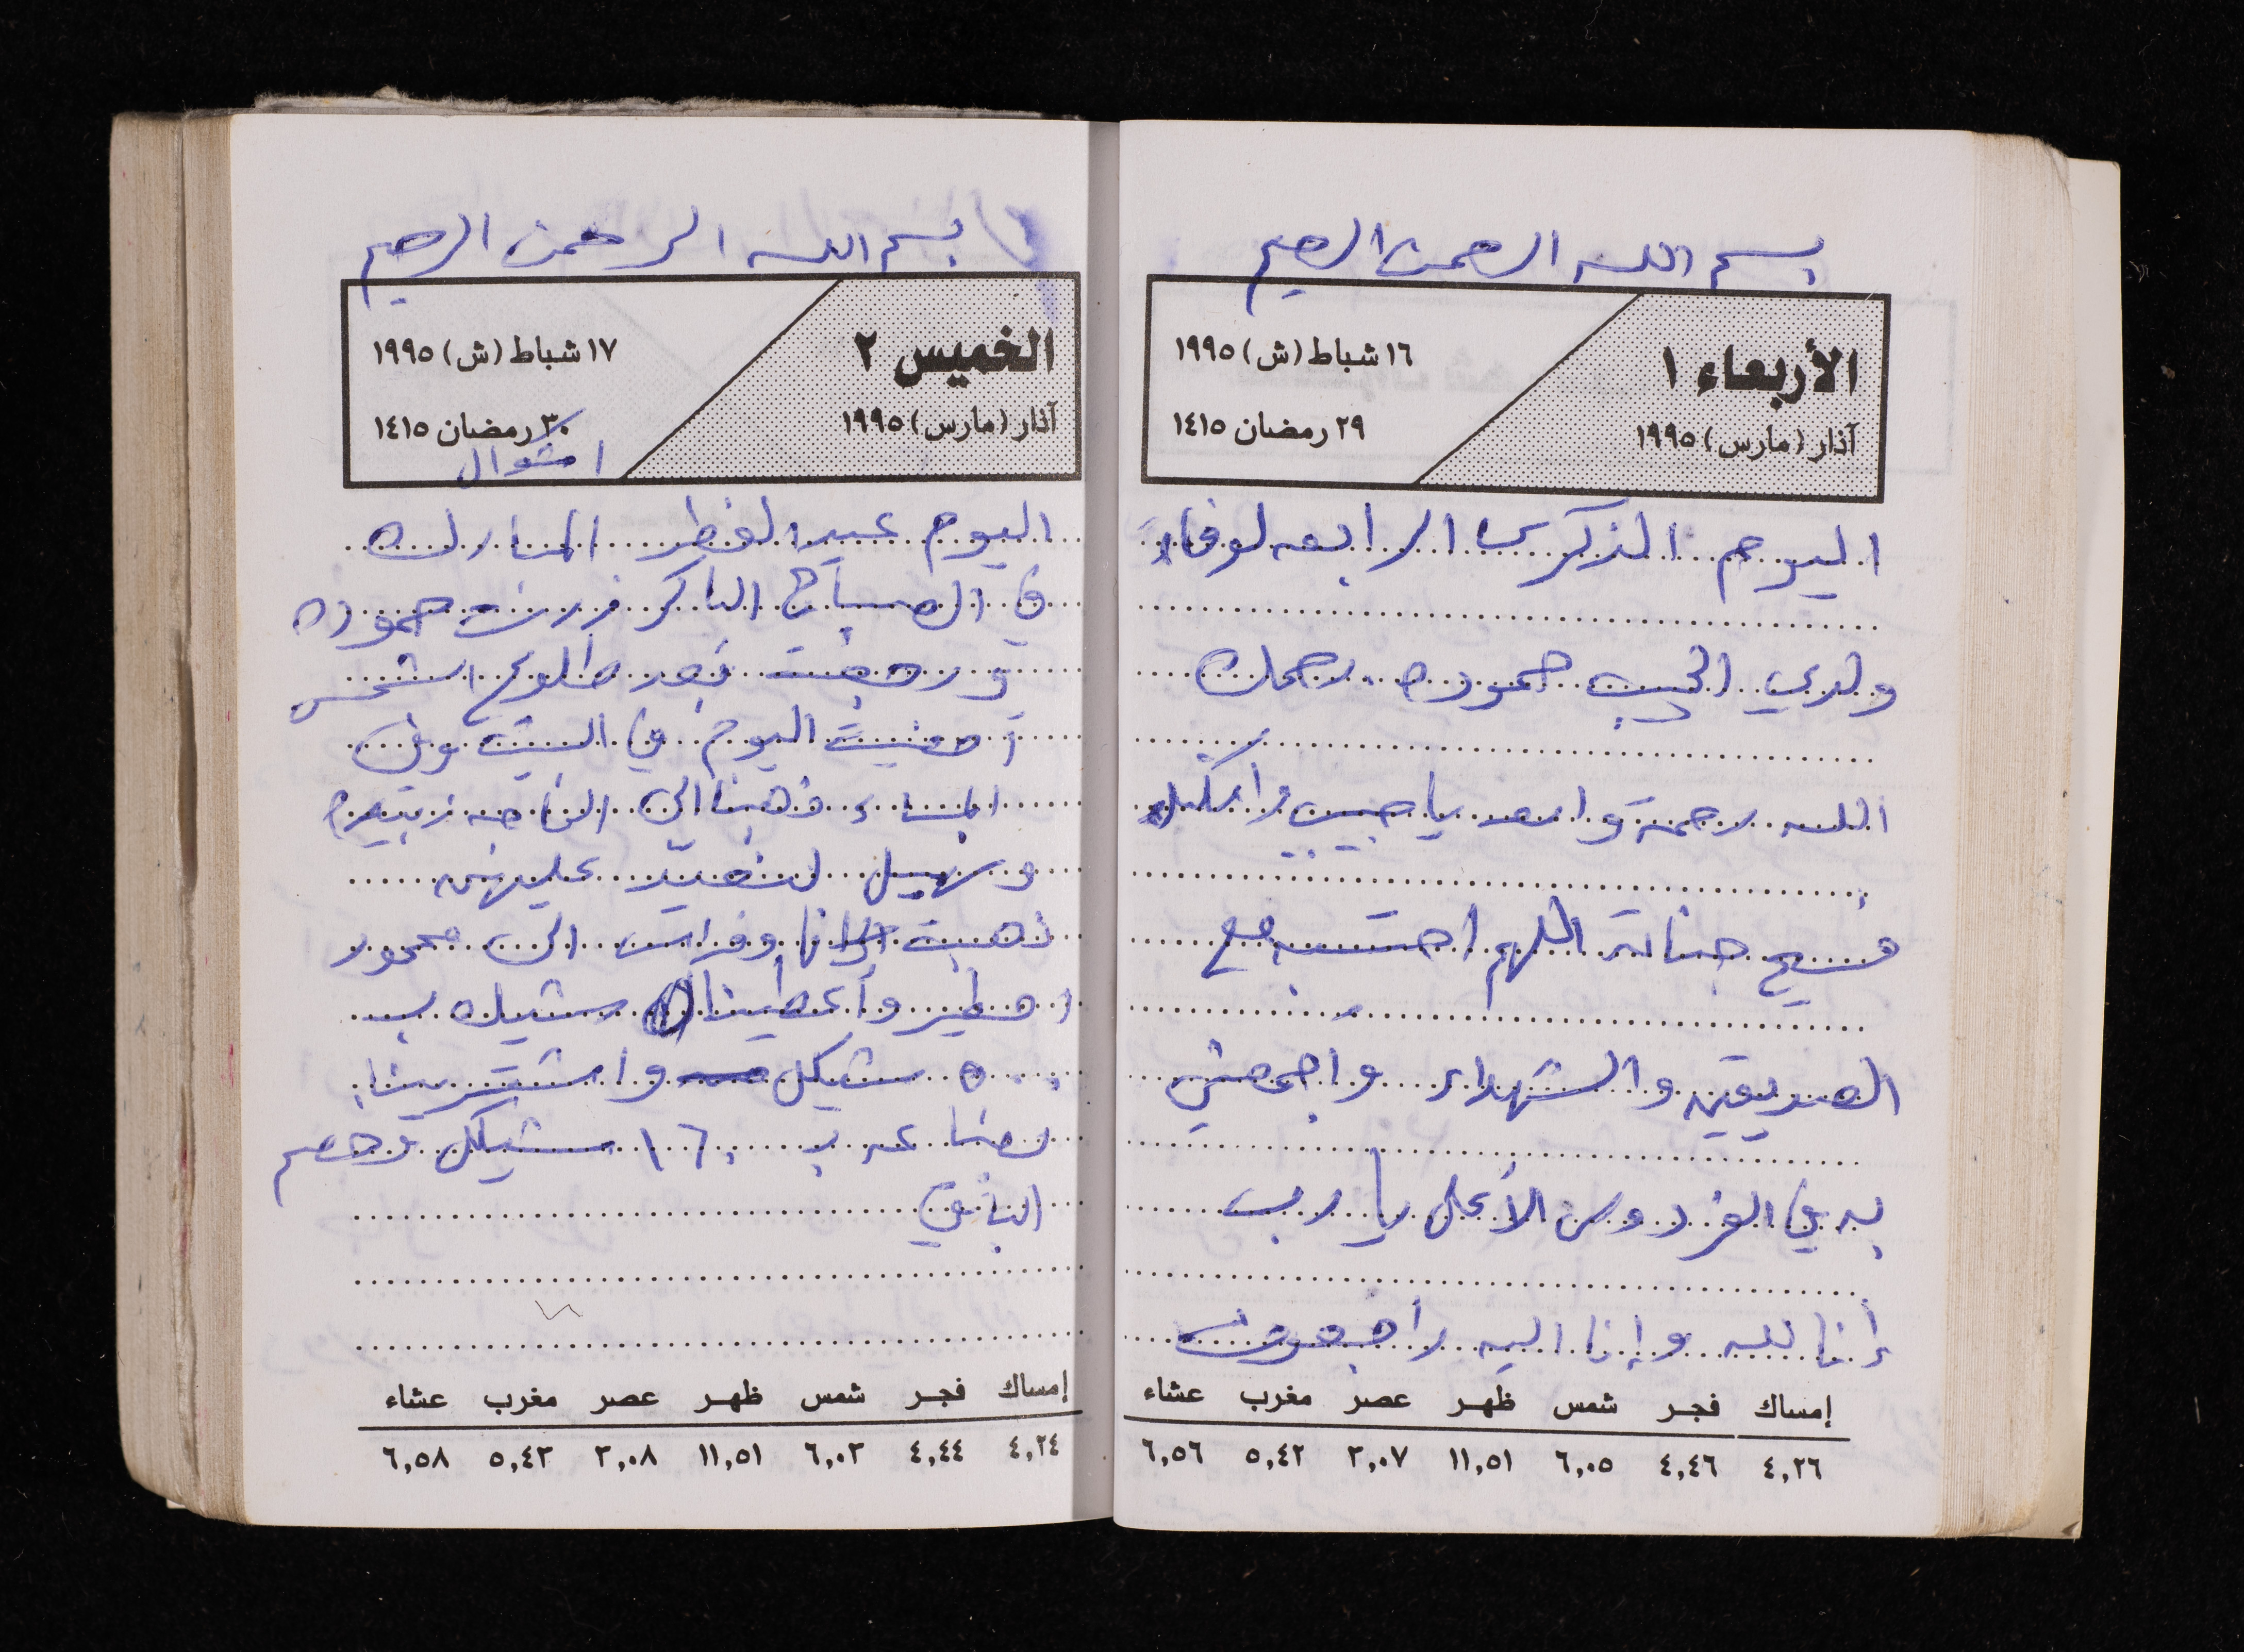 بسم الله الرحمن الرحيم
الأربعاء ١
آذار (مارس) ١٩٩٥
١٦ شباط (ش) ١٩٩٥
٢٩ رمضان ١٤١٥
اليوم الذكرى الرابعه لوفاة
ولدي الحبيب حموده رحمك
الله رحمة واسعه يا حبيبي وأسكنك
فسيح جناته اللهم احتسبه مع
الصديقين والشهداء واجمعني
به في الفردوس الأعلى يا رب
إنا لله وإنا اليه راجعون
إمساك فجـر شمس ظهـر عصر مغرب عشاء
٤,٢٦ ٤,٤٦ ٦,٠٥ ١١,٥١ ٣,٠٧ ٥,٤٢ ٦,٥٦
بسم الله الرحمن الرحيم
الخميس ٢
آذار (مارس) ١٩٩٥
١٧ شباط (ش) ١٩٩٥
٣٠ رمضان ١٤١٥
١ شوال
اليوم عيد الفطر المبارك
في الصباح الباكر زرت حموده
ورجعت بعد طلوع الشمس
أمضيت اليوم في البيت وفي
المساء ذهبنا الى
وسهيل لنعيد عليهن
ذهبت انا وفراس الى محمود
وأعطيناه شيك ب
٥٠٠ شيكل واشترينا
بضاعه ب ١٦٠ شيكل وخصم
الباقي
إمساك فجـر شمس ظهـر عصر مغرب عشاء
٤,٢٤ ٤,٤٤ ٦,٠٣ ١١,٥١ ٣,٠٨ ٥,٤٣ ٦,٥٨